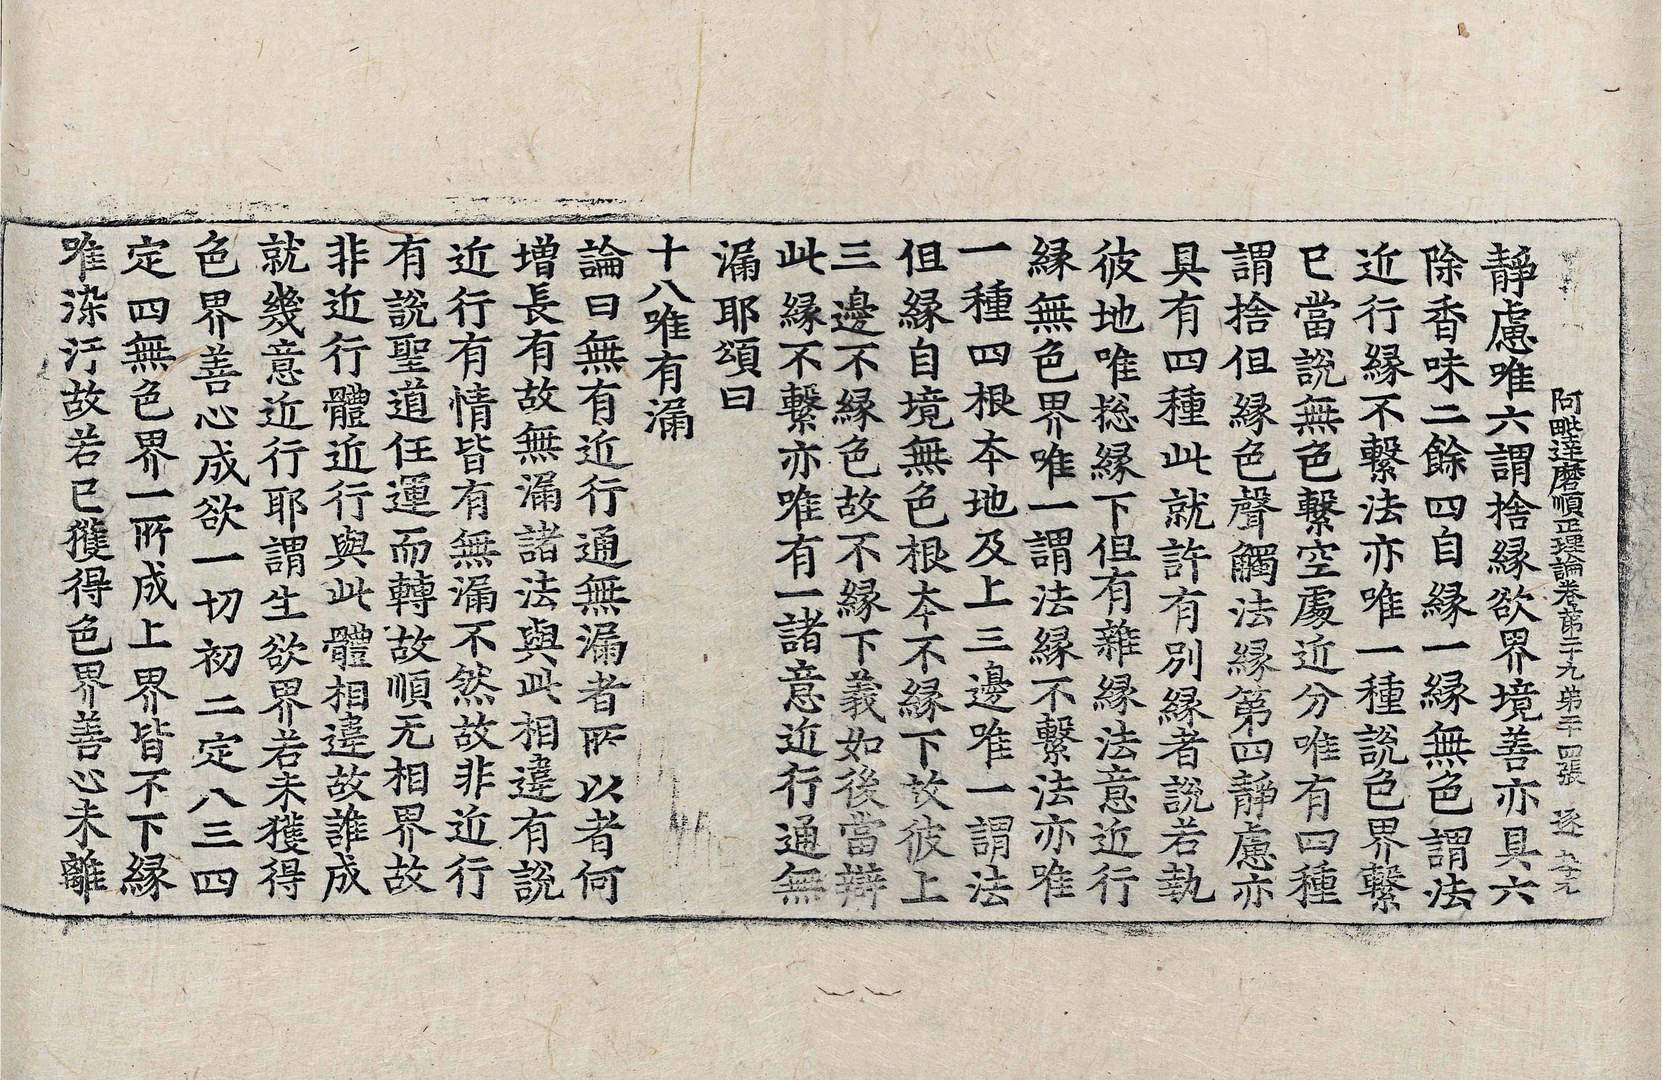 阿毗達磨順正理論卷第二十九 弟二十四張 逐
靜慮唯六謂捨緣欲界境善亦具六
除香味二餘四自緣一緣無色謂法
近行緣不繫法亦唯一種說色界繫
已當說無色繫空處近分唯有四種
謂捨但緣色聲觸法緣第四靜慮亦
具有四種此就許有別緣者說若執
彼地唯捴緣下但有雜緣法意近行
緣無色界唯一謂法緣不繫法亦唯
一種四根本地及上三邊唯一謂法
但緣自境無色根本不緣下故彼上
三邊不緣色故不緣下義如後當辯
此緣不繫亦唯有一諸意近行通無
漏耶頌曰
十八唯有漏
論曰無有近行通無漏者所以者何
增長有故無漏諸法與此相違有說
近行有情皆有無漏不然故非近行
有說聖道任運而轉故順无相界故
非近行體近行與此體相違故誰成
就幾意近行耶謂生欲界若未獲得
色界善心成欲一切初二定八三四
定四無色界一所成上界皆不下緣
唯染汙故若已獲得色界善心未離